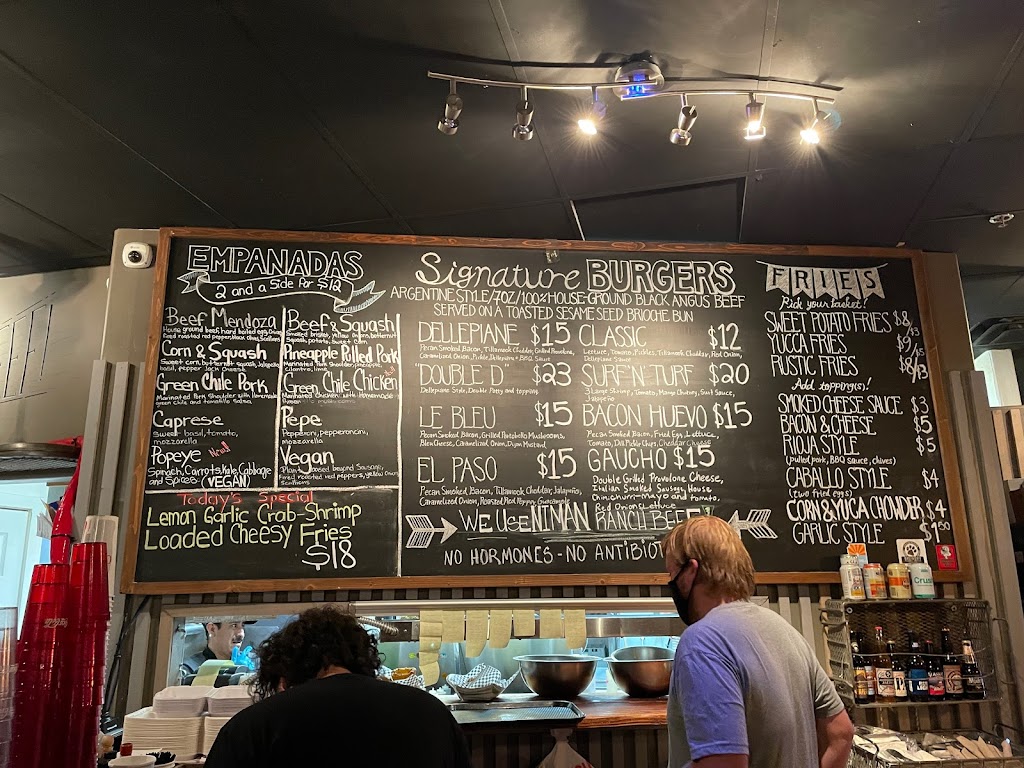 EMPANADAS
2 and a Side for $12
Beef Mendoza
House ground beef, hard boiled egg, Onions
Fire roasted red pepper, black olives, Scallions
Corn & Squash
Sweet corn, butternut squash, Jalapeño
basil, pepper Jack Cheese
Green Chile Pork
Marinated Pork Shoulder with Homemade
green Chile and tomatillo Salsa
Caprese
Sweet basil, tomato,
mozzarella
Popeye New!
Spinach, Carrots, Kale, Cabbage
and Spices (VEGAN)
Beef & Squash
Smoked brisket, Yellow onions, butternut
Squash, potato, Sweet Corn
Pineapple Pulled Pork
Marinated Pork Shoulder, pineapple,
Cilantro, lime
Green Chile Chicken
Marinated Chicken with Homemade
Pepe
Pepperoni, pepperoncini,
mozzarella
Vegan
Plant based beyond Sausage,
Fired roasted red peppers, yellow Onions
Scallions
Today's Special
Lemon Garlic Crab-Shrimp
Loaded Cheesy Fries
$18
Signature BURGERS
ARGENTINE STYLE/7OZ/100% HOUSE-GROUND BLACK ANGUS BEEF
SERVED ON A TOASTED SESAME SEED BRIOCHE BUN
DELLEPIANE $15
Pecan Smoked Bacon, Tillamook Cheddar, Grilled Pancetta,
Caramelized Onion, Pickle, Dellepiane & BBQ Sauce
"DOUBLE D" $23
Dellepiane Style, Double Patty and topping
LE BLEU $15
Pecan Smoked Bacon, Grilled Portobello Mushrooms,
Bleu Cheese, Caramelized Onion, Dijon Mustard
EL PASO $15
Pecan Smoked Bacon, Tillamook Cheddar, Jalapeño,
Caramelized Onion, Roasted Red Pepper, Guacamole
CLASSIC $12
Lettuce, Tomato, Pickles, Tillamook Cheddar, Red Onion,
Dellepiane Sauce
SURF'N TURF $20
Jalapeño
BACON HUEVO $15
Pecan Smoked Bacon, Fried Egg, Lettuce,
Tomato, Dill Pickle Chips, Cheddar Cheese
GAUCHO $15
Double Grilled Provolone Cheese,
Italian Smoked Sausage, House
Chimichurri-Mayo and tomato,
Red Onion, Lettuce
WE Use NIMAN RANCH BEEF!
NO HORMONES - NO ANTIBIOT
FRIES
Pick your basket!
SWEET POTATO FRIES $8/13
YUCCA FRIES $9/15
RUSTIC FRIES $8/13
Add topping(s)!
SMOKED CHEESE SAUCE $3
BACON & CHEESE $5
RIOJA STYLE $5
(pulled pork, BBQ Sauce, chives)
CABALLO STYLE $4
(two fried eggs)
CORN & YUCA CHOWDER $4
GARLIC STYLE $1.50
Crush